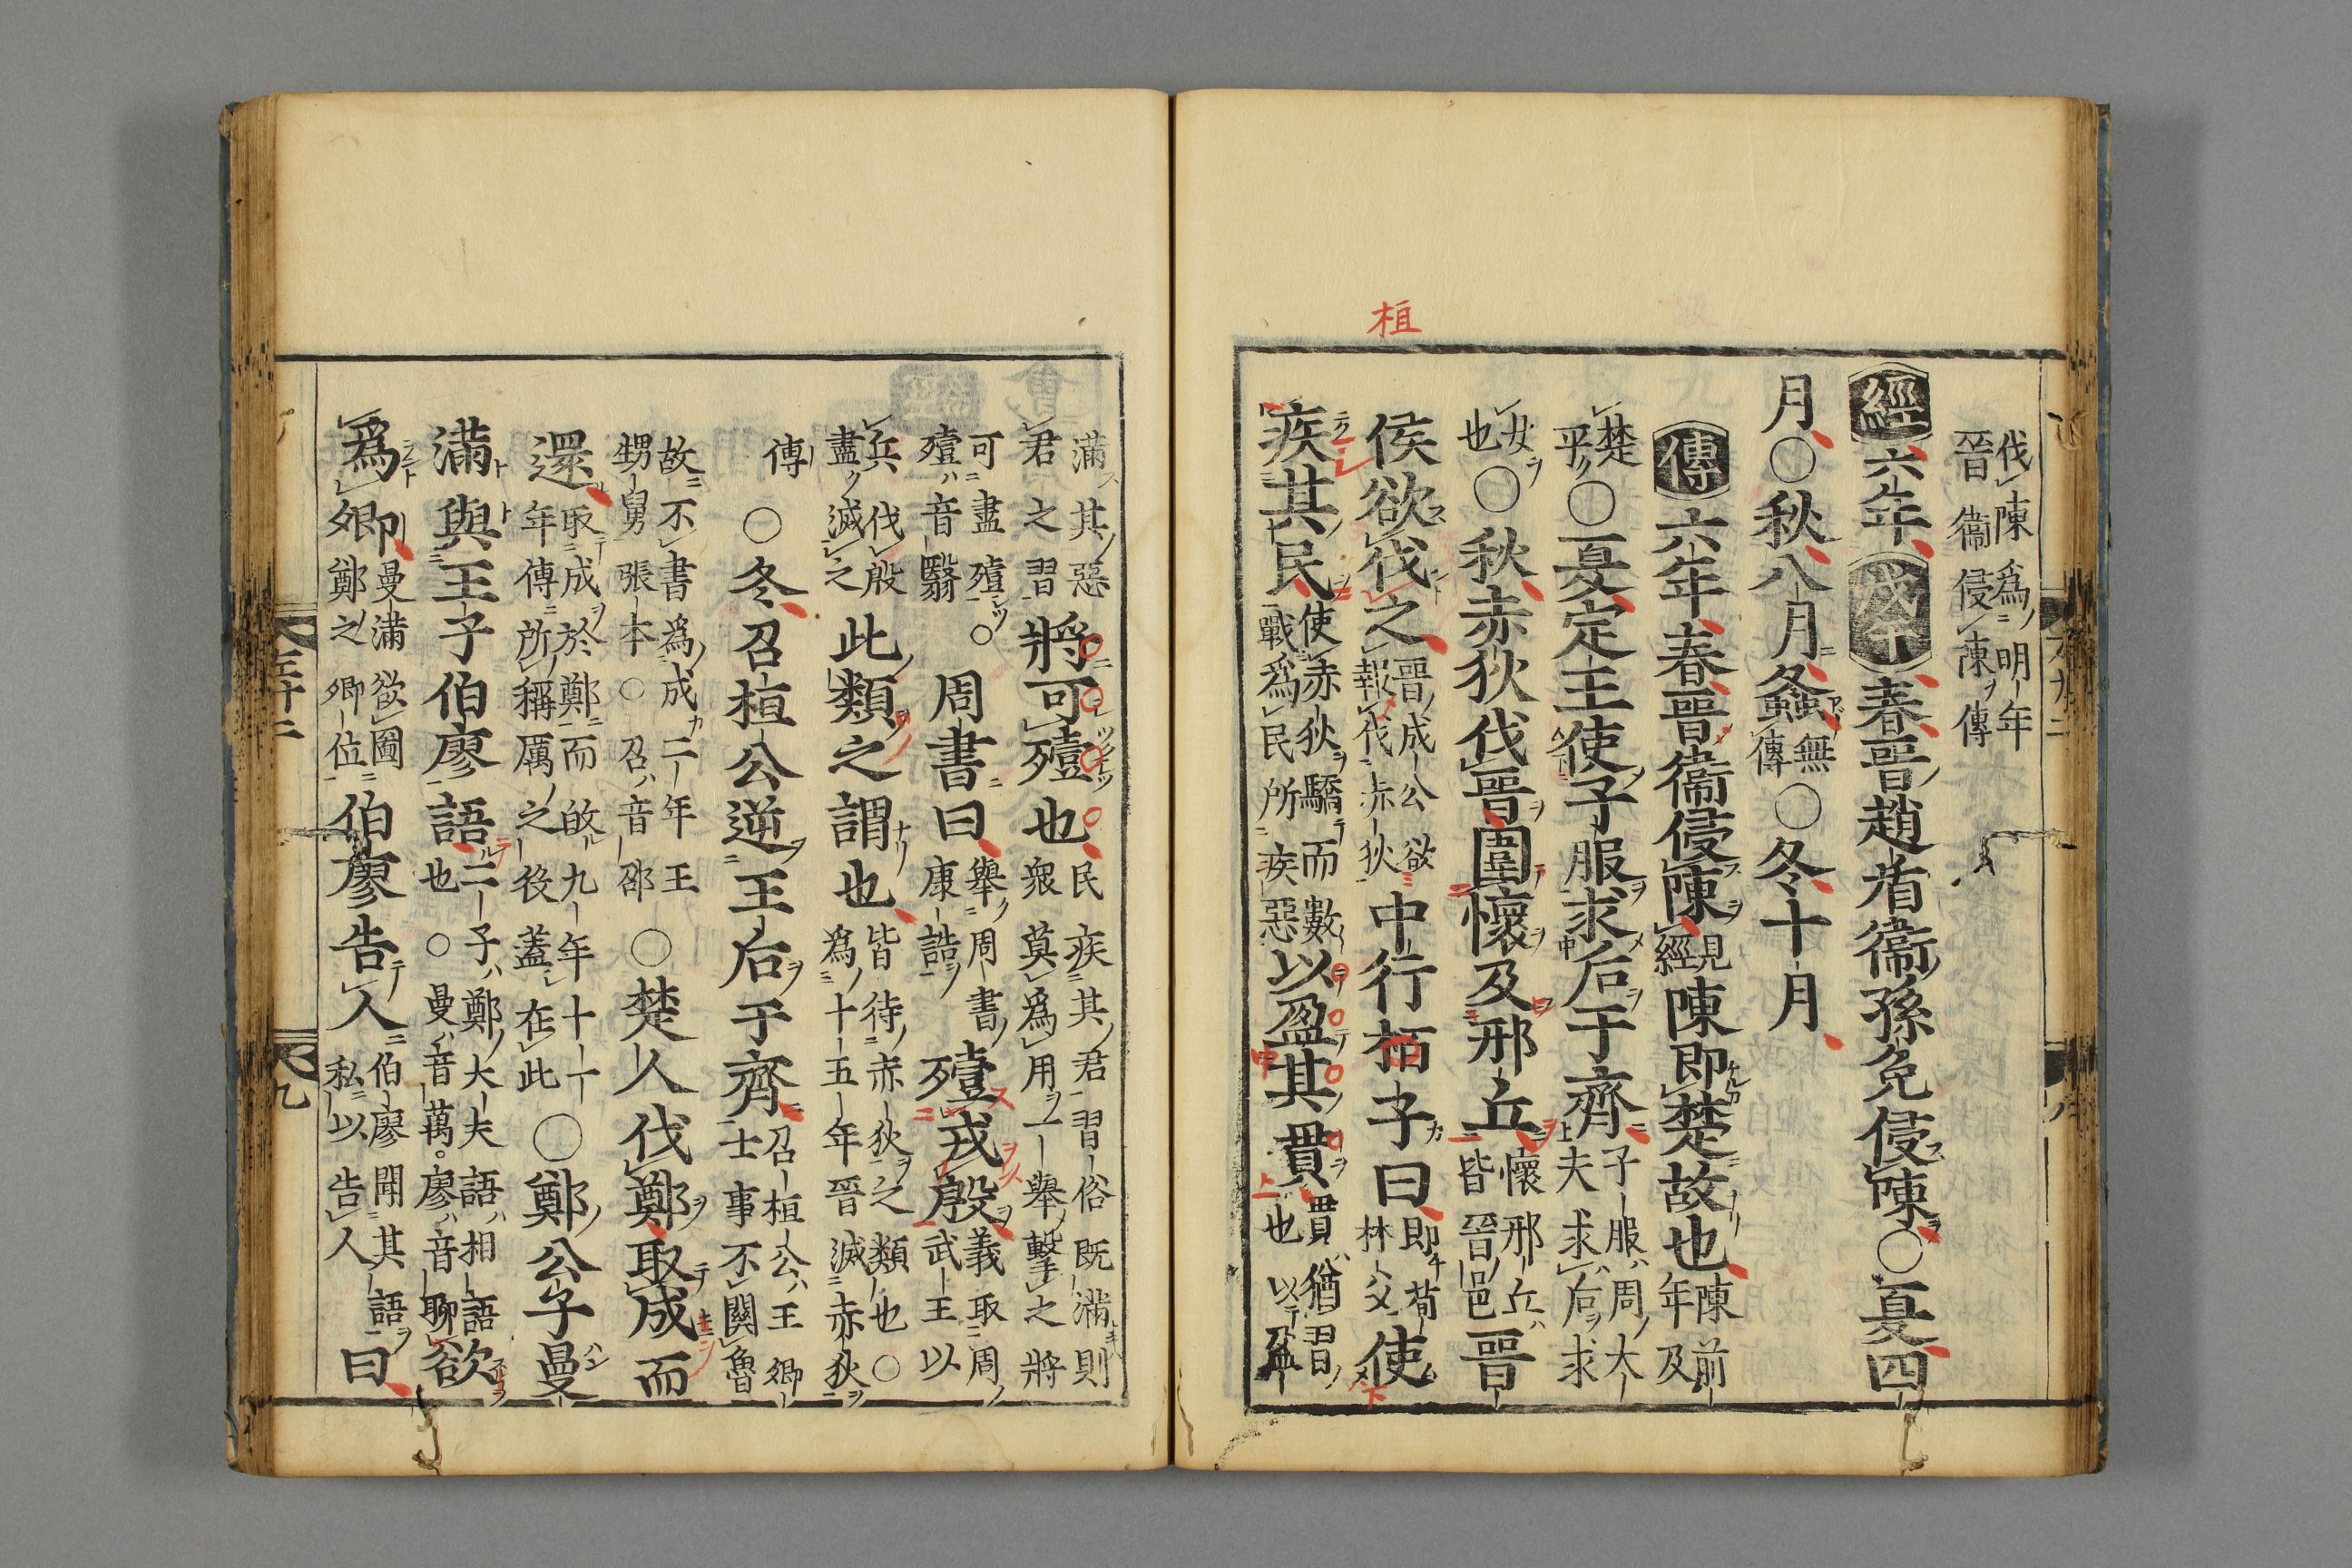 桓
伐陳爲明年
晉衞侵陳傳
經六年戊午春晉趙盾衞孫免侵陳〇夏四
月〇秋八月螽無傳〇冬十月
傳六年春晉衞侵陳見經陳即楚故也陳前年及
楚平〇夏定王使子服求后于齊子服周大夫求后求
女也〇秋赤狄伐晉圍懷及邢丘懷邢丘皆晉邑晉
侯欲伐之晉成公欲報伐赤狄中行栢子曰即荀林父使
疾其民使赤狄驕而數戰爲民所疾惡以盈其貫貫猶習也以盈
滿其惡君之習將可殪也民疾其君習俗既滿則衆莫爲用一舉擊之將
可盡殪殪音翳〇周書曰舉周書康誥殪戎殷義取周武王以
兵伐殷盡滅之此類之謂也皆待赤狄之類也〇爲十五年晉滅赤狄
傳〇冬召桓公逆王后于齊召桓公王卿士事不關魯
故不書爲成二年王甥舅張本〇召音邵〇楚人伐鄭取成而
還取成於鄭而敀九年十一年傳所稱厲之役蓋在此〇鄭公子曼
滿與王子伯廖語二子鄭大夫語相語也〇曼音萬。廖音聊欲
爲卿曼滿欲圖鄭之卿位伯廖告人伯廖聞其語私以告人曰
三十二
九